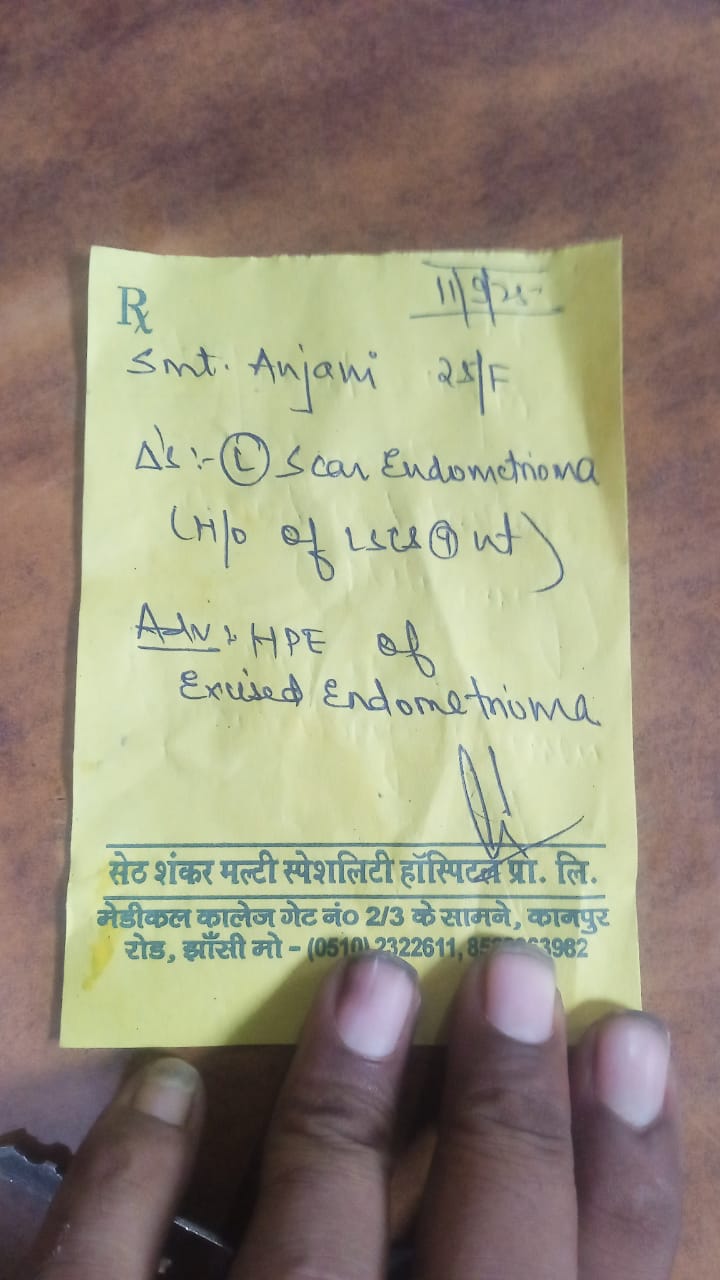 Rx
11/9/25
Smt. Anjani 25/F
Δ's :- (L) Scar Endometrioma
(H/o of LSCS
Adv: HPE of
Excised Endometrioma
सेठ शंकर मल्टी स्पेशलिटी हॉस्पिटल प्रा. लि.
मेडीकल कालेज गेट नं० 2/3 के सामने, कानपुर
रोड, झाँसी मो - (0510) 2322611,